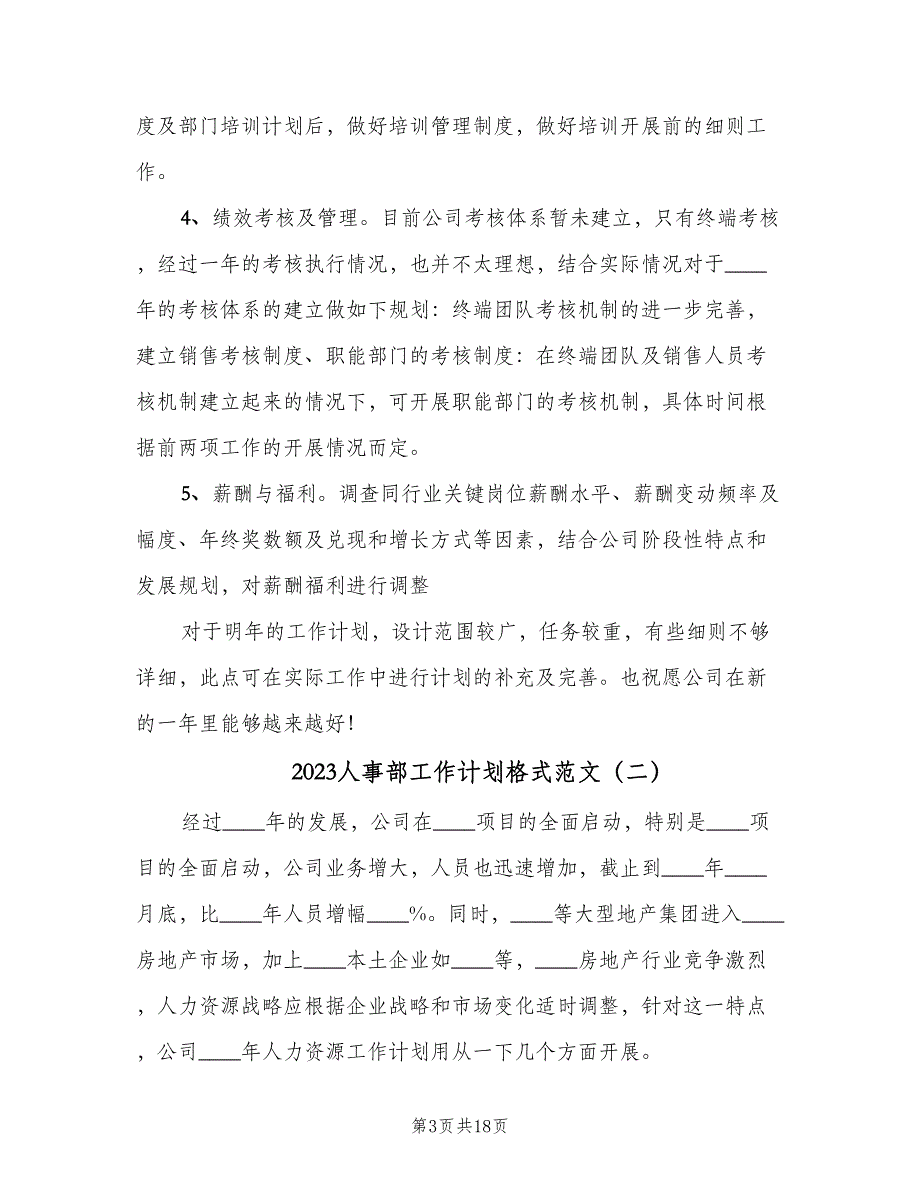 度及部门培训计划后，做好培训管理制度，做好培训开展前的细则工
作。
4、绩效考核及管理。目前公司考核体系暂未建立，只有终端考核
，经过一年的考核执行情况，也并不太理想，结合实际情况对于____
年的考核体系的建立做如下规划：终端团队考核机制的进一步完善，
建立销售考核制度、职能部门的考核制度：在终端团队及销售人员考
核机制建立起来的情况下，可开展职能部门的考核机制，具体时间根
据前两项工作的开展情况而定。
5、薪酬与福利。调查同行业关键岗位薪酬水平、薪酬变动频率及
幅度、年终奖数额及兑现和增长方式等因素，结合公司阶段性特点和
发展规划，对薪酬福利进行调整
对于明年的工作计划，设计范围较广，任务较重，有些细则不够
详细，此点可在实际工作中进行计划的补充及完善。也祝愿公司在新
的一年里能够越来越好！
2023人事部工作计划格式范文（二）
经过____年的发展，公司在____项目的全面启动，特别是____项
目的全面启动，公司业务增大，人员也迅速增加，截止到____年____
月底，比____年人员增幅____%。同时，____等大型地产集团进入____
房地产市场，加上____本土企业如____等，____房地产行业竞争激烈
，人力资源战略应根据企业战略和市场变化适时调整，针对这一特点
，公司____年人力资源工作计划用从一下几个方面开展。
第3页共18页